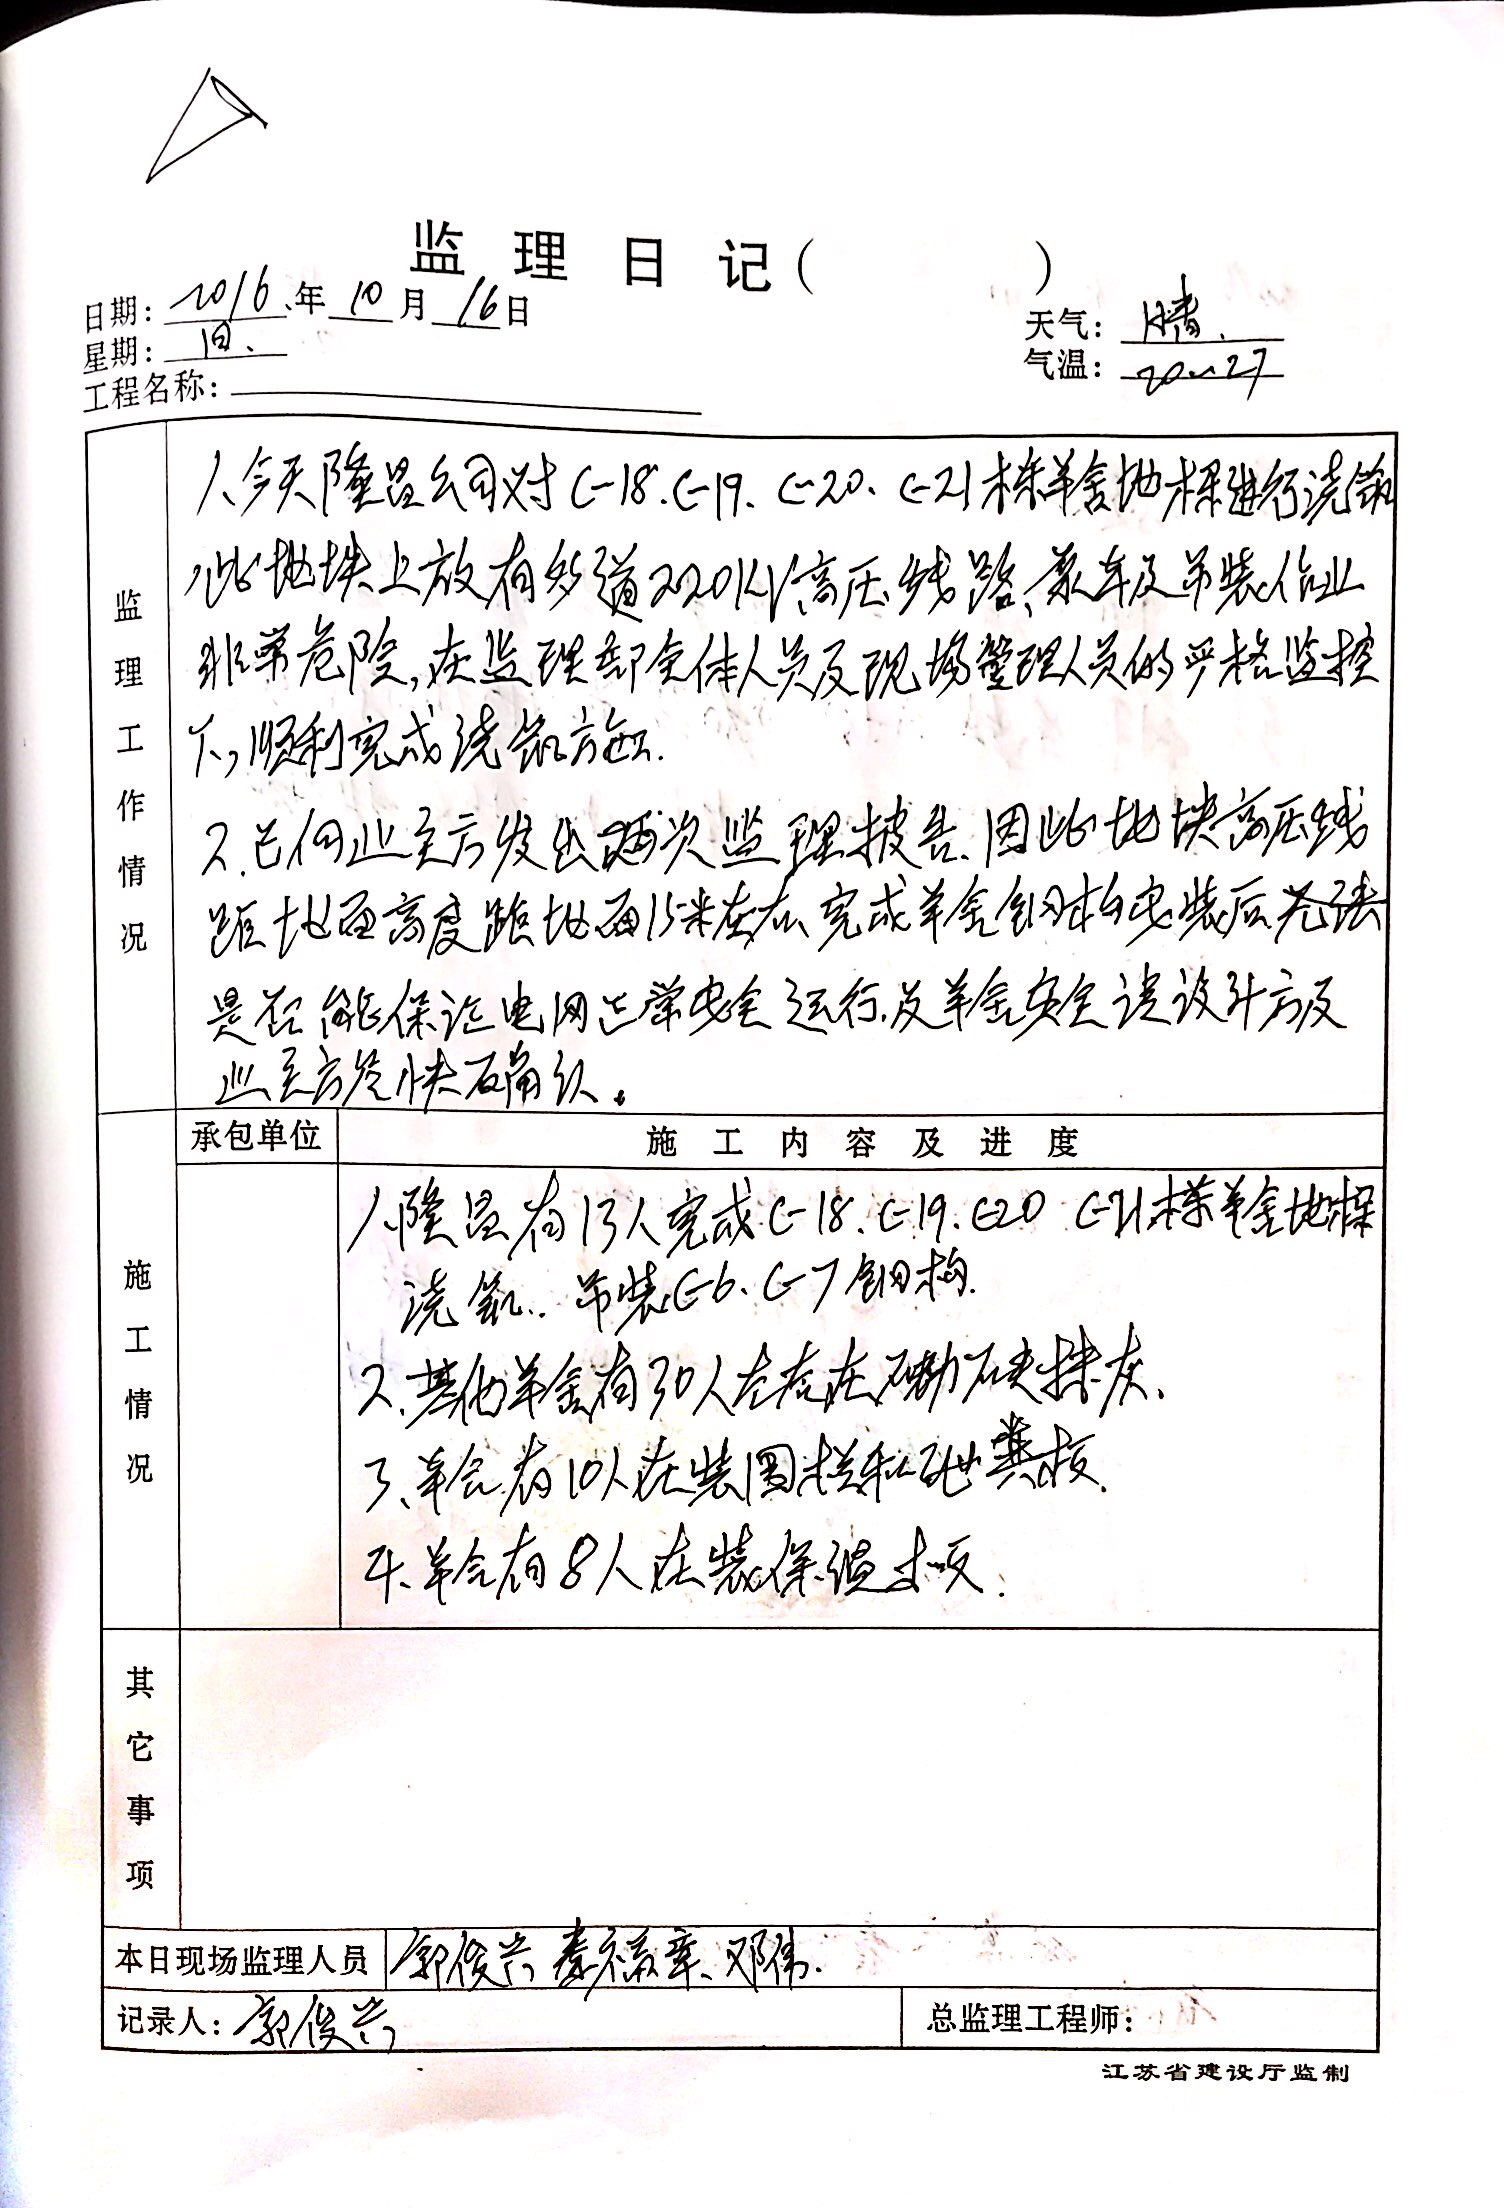 监理日记( )
日期: 2016.年10月16日
天气: 晴.
星期: 日.
气温: 20~27
工程名称:
监理工作情况
1、今天隆昌公司对C-18.C-19、C-20、C-21栋羊舍地梁进行浇筑
,此地块上放有多道220KV高压线路、泵车及吊装作业
非常危险,在监理部全体人员及现场管理人员的严格监控
下,顺利完成浇筑施工.
2.已向业主方发出两次监理报告、因此地块高压线
距地面高度距地面15米左右、完成羊舍钢构安装后无法
是否能保证电网正常安全运行.及羊舍安全请设计方及
业主方尽快确认。
施工情况
承包单位
施工内容及进度
1、隆昌有13人完成C-18.C-19.C-20 C-21栋羊舍地梁
浇筑.. 吊装C-6、C-7钢构.
2、其他羊舍有30人左右在砌砖抹灰、
3、羊舍有10人在装围栏和砲粪板.
4、羊舍有8人在装保温板.
其它事项
本日现场监理人员 郭俊兴 秦福章、邓伟.
记录人: 郭俊兴
总监理工程师:
江苏省建设厅监制